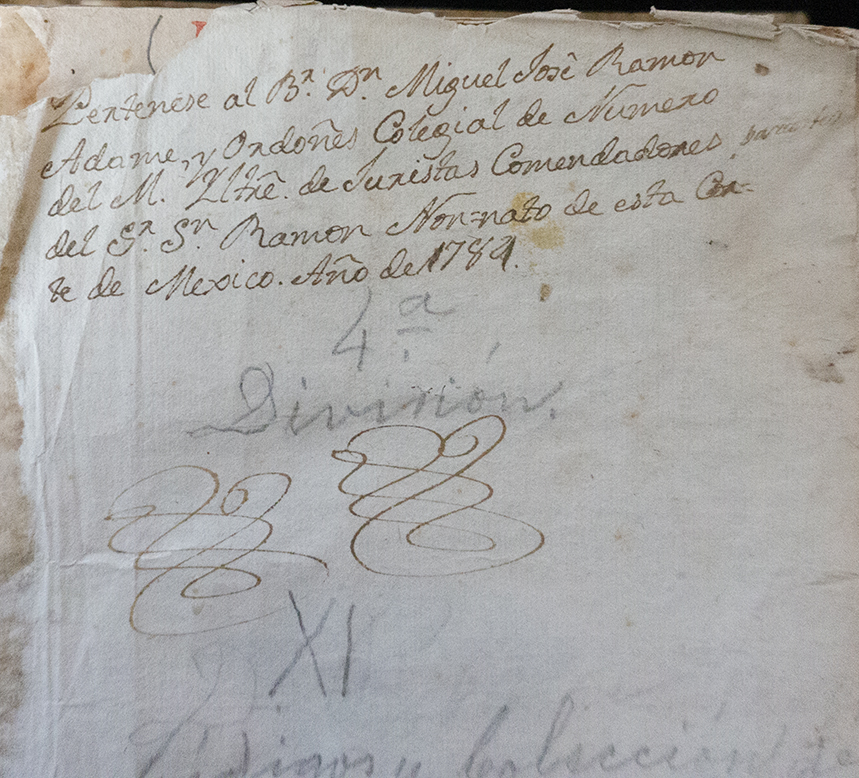 Pertenese al Br. Dn. Miguel Josê Ramon
Adame, y Ordoñes Colegial de Numero
del M. Yltrê. de Juristas Comendadores
del Sr. Sn. Ramon Non=nato de esta Cor=
te de Mexico. Año de 1784.
4.a
División.
XI
Códigos y Colección de